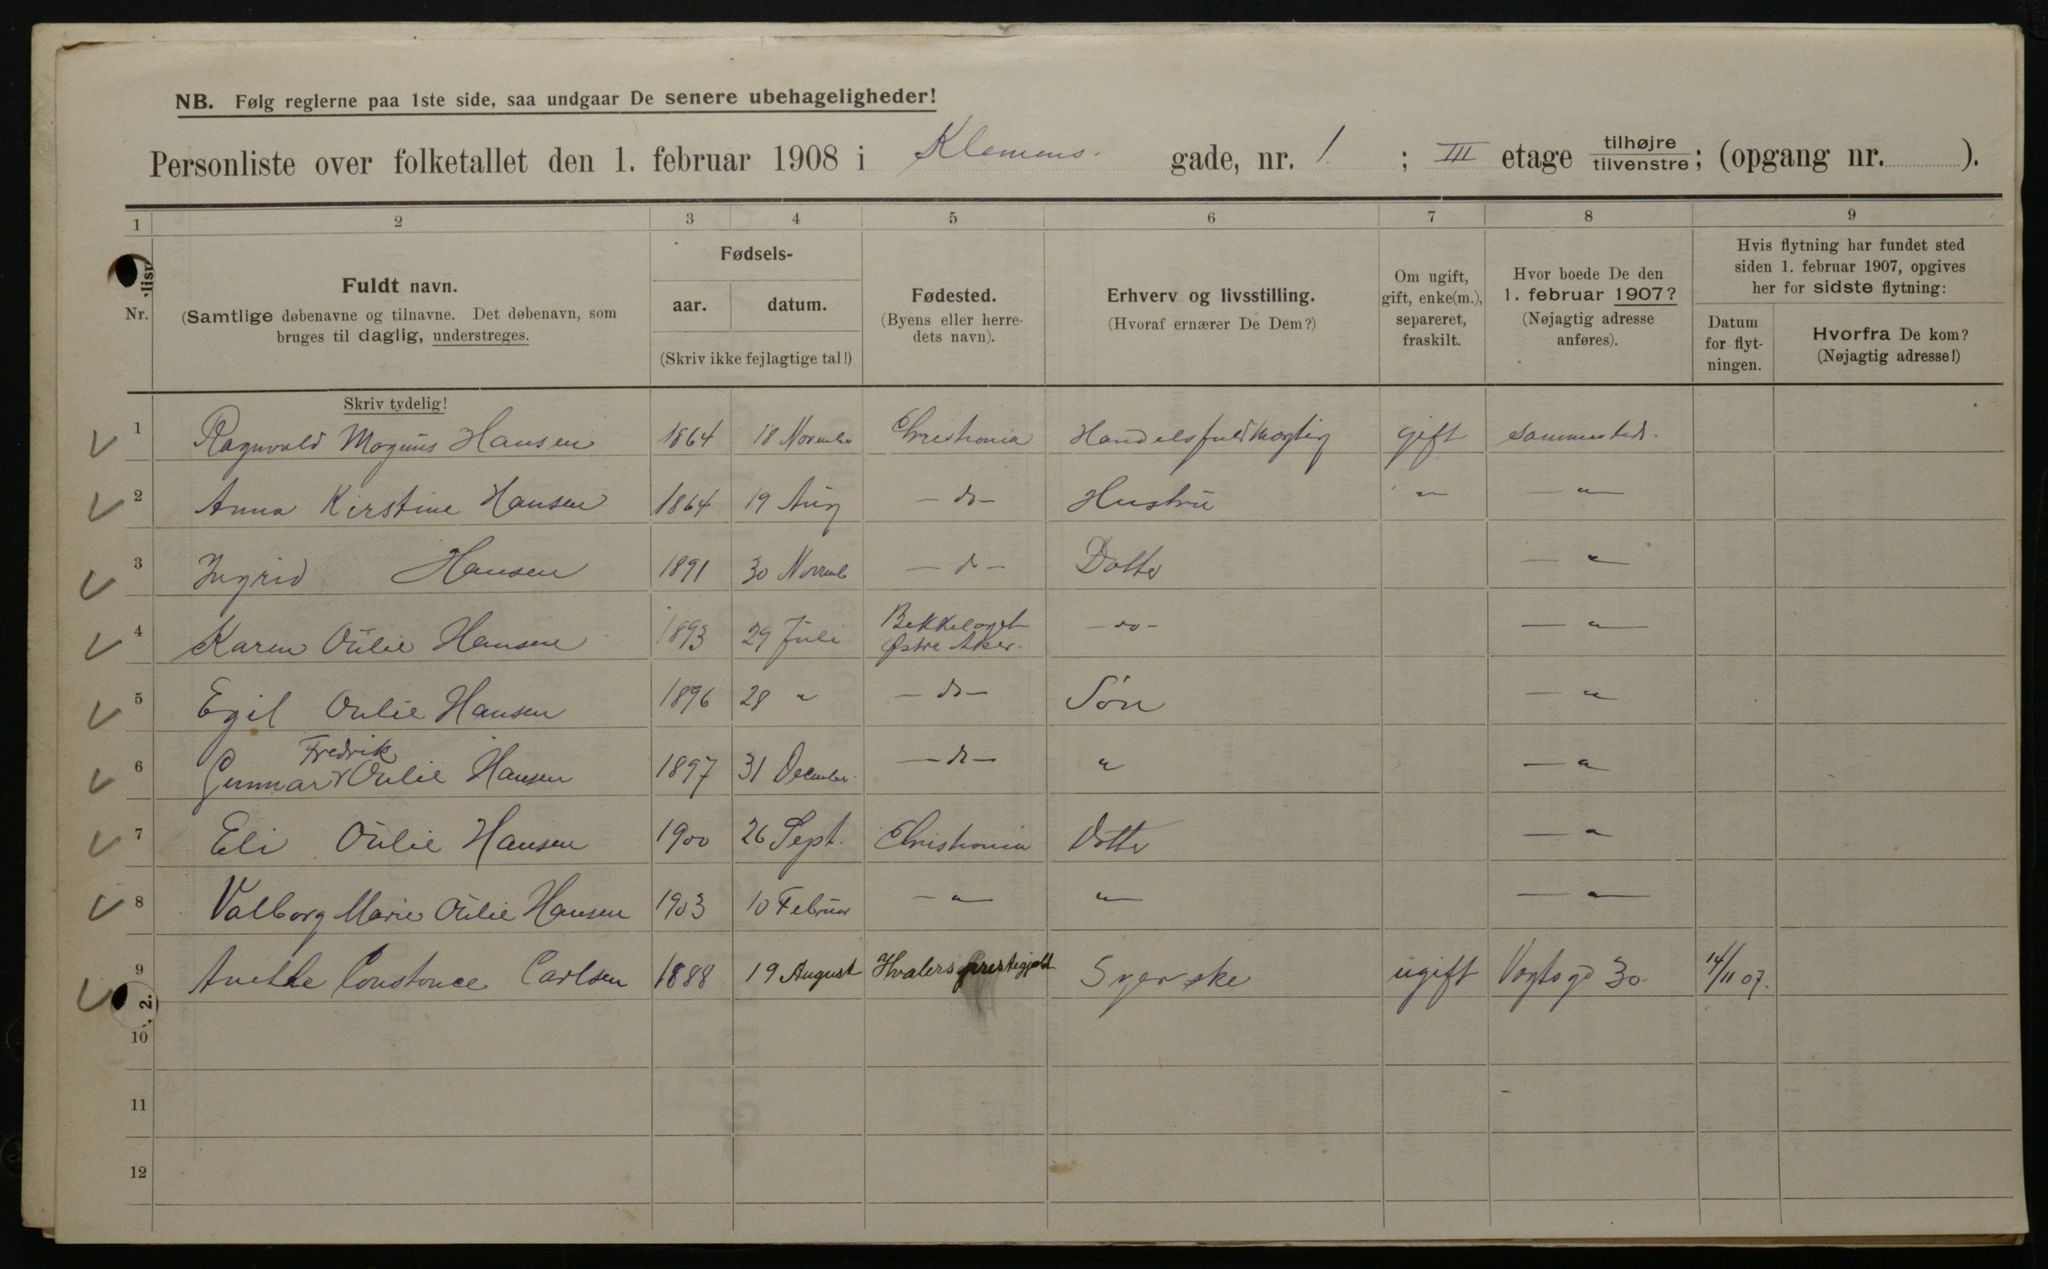 NB. Følg reglerne paa 1ste side, saa undgaar De senere ubehageligheder!
Personliste over folketallet den 1. februar 1908 i Klemens gade, nr. 1 ; III etage tilhøjre tilvenstre; (opgang nr. ).
1 2 3 4 5 6 7 8 9
Nr.
Fuldt navn.
(Samtlige døbenavne og tilnavne. Det døbenavn, som
bruges til daglig, understreges.
Skriv tydelig!
Fødsels-
aar. datum.
(Skriv ikke fejlagtige tal!)
Fødested.
(Byens eller herre-
dets navn).
Erhverv og livsstilling.
(Hvoraf ernærer De Dem?)
Om ugift,
gift, enke(m.),
separeret,
fraskilt.
Hvor boede De den
1. februar 1907?
(Nøjagtig adresse
anføres).
Hvis flytning har fundet sted
siden 1. februar 1907, opgives
her for sidste flytning:
Datum
for flyt-
ningen.
Hvorfra De kom?
(Nøjagtig adresse!)
1 Ragnvald Magnus Hansen 1864 18 Novembr Christiania Handelsfuldmægtig gift sammesteds.
2 Anna Kirstine Hansen 1864 19 Aug — do — Hustru " — " —
3 Ingrid Hansen 1891 30 Novemb — do — Datter — " —
4 Karen Oulie Hansen 1893 29 Juli Bekkelaget Østre Aker. — do — — " —
5 Egil Oulie Hansen 1896 28 " — do — Søn — " —
6 Gunnar Fredrik Oulie Hansen 1897 31 December — do — " — " —
7 Eli Oulie Hansen 1900 26 Sept. Christiania Datter — " —
8 Valborg Marie Oulie Hansen 1903 10 Februar — " — " — " —
9 Anethe Constance Carlsen 1888 19 August Hvalers prestegjeld ugift Vogtsgd 30. 14/11 07.
10
11
12